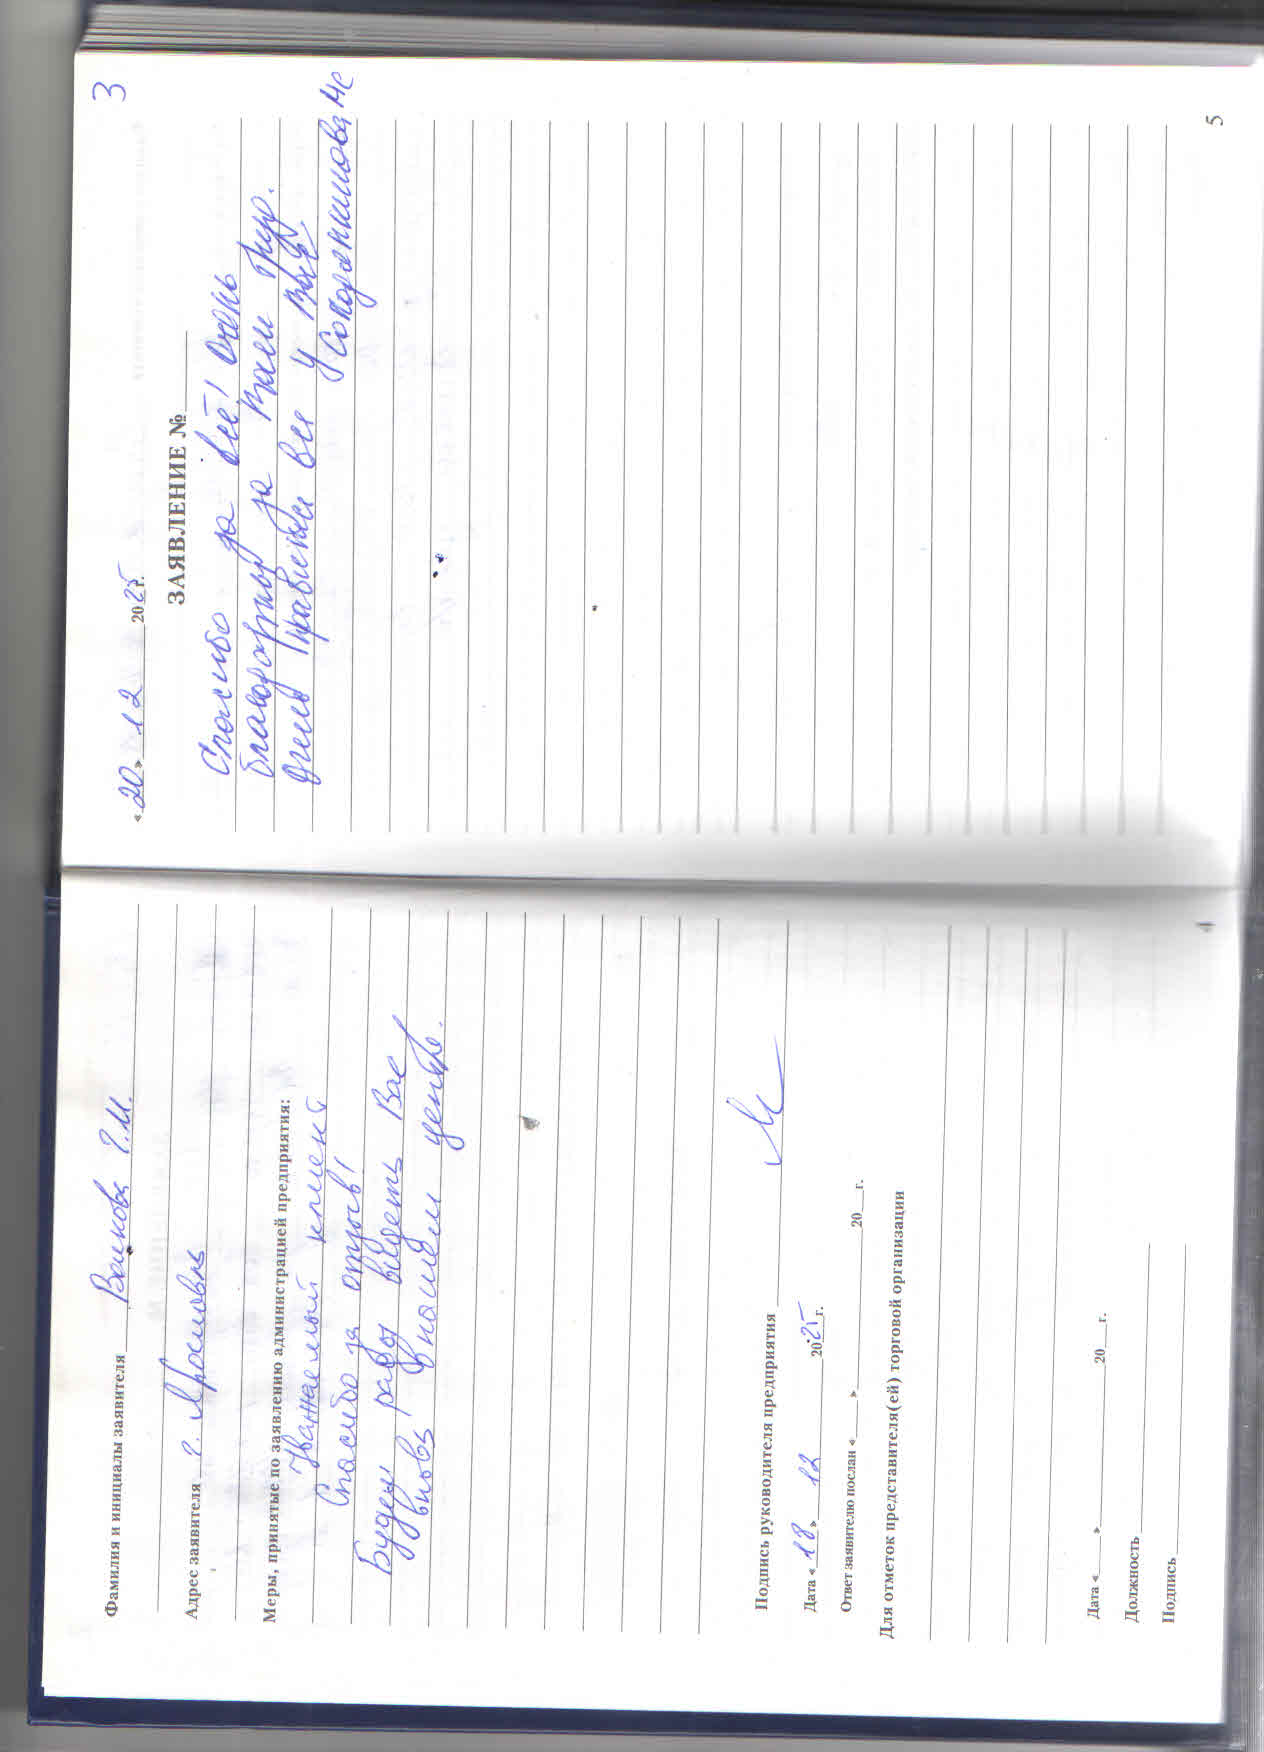 Фамилия и инициалы заявителя Волкова Г.М.
Адрес заявителя г. Ярославль
Меры, принятые по заявлению администрацией предприятия:
Уважаемый клиент
Спасибо за отзыв!
Будем рады видеть Вас
вновь в нашем центре.
Подпись руководителя предприятия
Дата «18» 12 2025г.
Ответ заявителю послан «___» ___ 20___г.
Для отметок представителя(ей) торговой организации
Дата «___» ___ 20___г.
Должность
Подпись
4
3
«20» 12 2025г.
ЗАЯВЛЕНИЕ №
Спасибо за всё! Очень
благодарны за Ваш труд.
Очень нравится все у Вас.
5